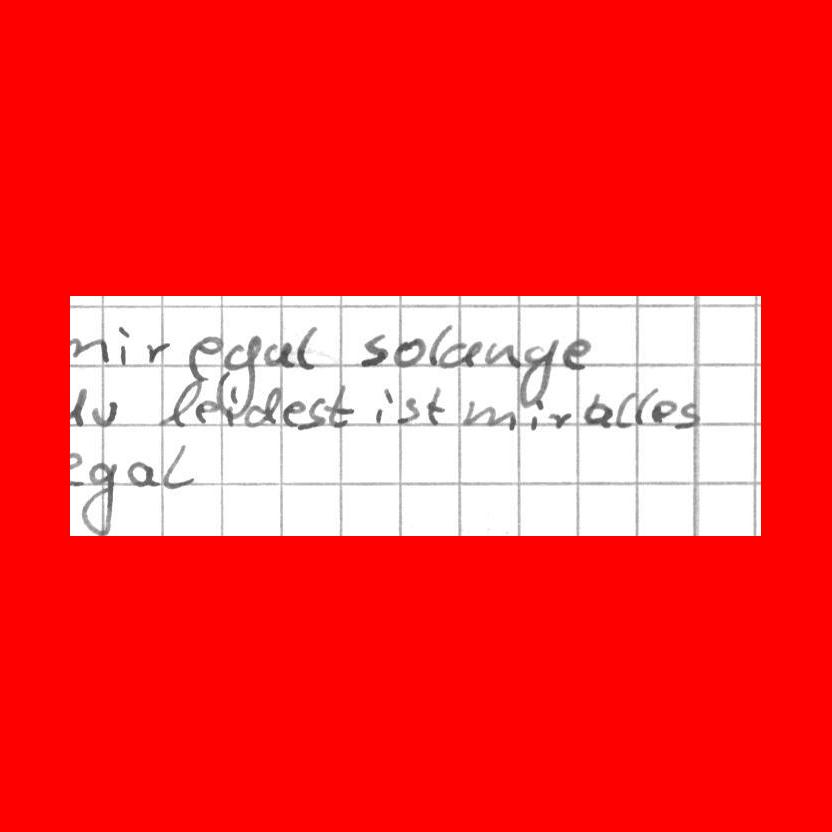 mir egal solange
du leidest ist mir alles
egal